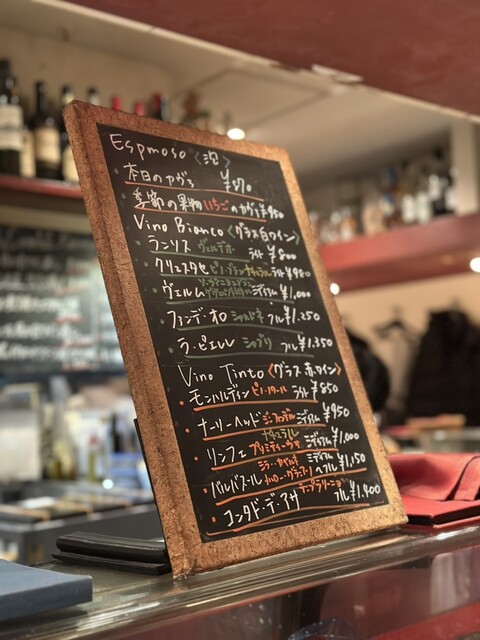 Espmoso〈泡〉
本日のカヴァ ¥870
季節の果物いちごのカヴァ ¥950
Vino Bianco〈グラス白ワイン〉
ランリス ヴェルデホ ライト ¥800
クリュスタセ ピノ・ブラン ナチュラル ライト ¥980
ヴェルム ミディアム ¥1,000
ファンデ・オロ シャルドネ フル ¥1.250
ラ・ピエレレ シャブリ フル ¥1.350
Vino Tinto〈グラス赤ワイン〉
モンハルディン ピノ・ノワール ライト ¥850
ナーリーヘッド ジンファンデル ミディアム ¥950
ナチュラル
リンフェ プリミティーヴォ ミディアム ¥1,000
バルバスール ミディアム〜フル ¥1,150
テンプラリーニョ
コンダド・デ・アサ フル ¥1.400